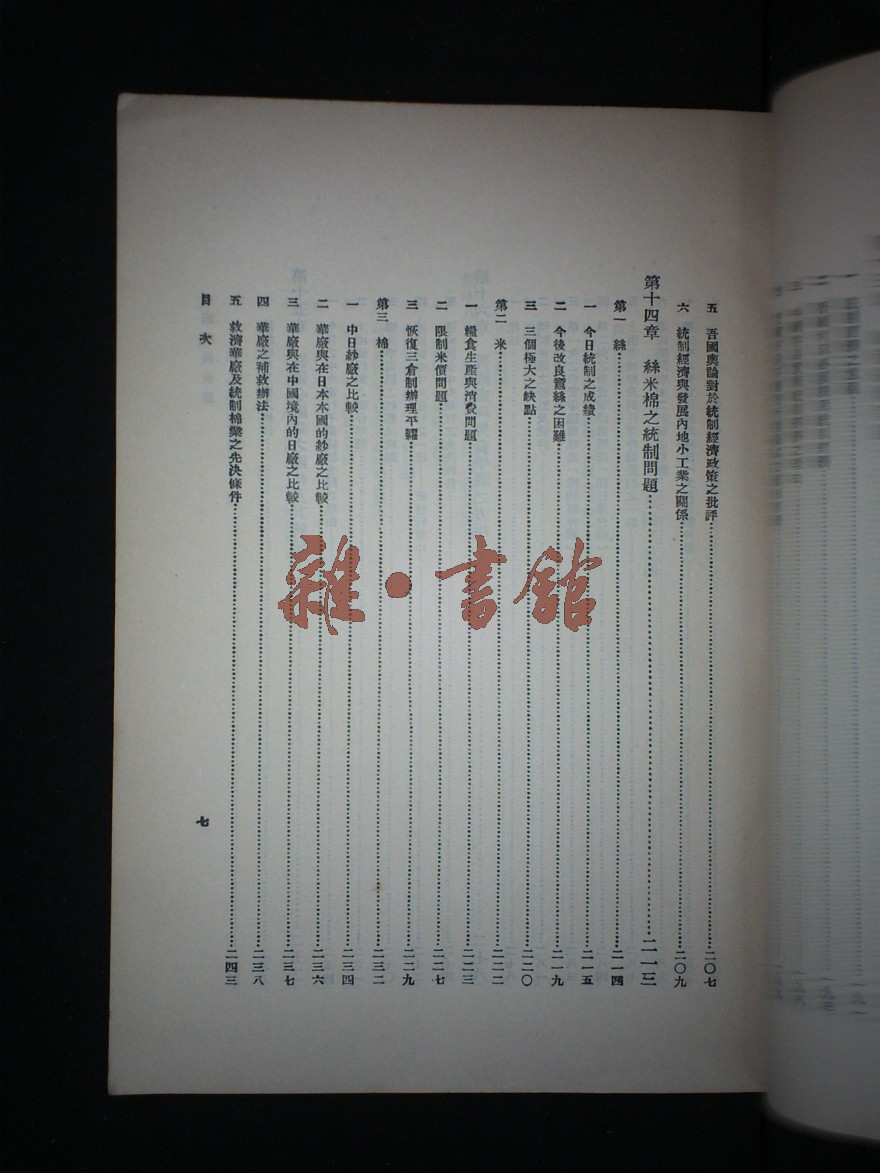 五　吾國輿論對於統制經濟政策之批評……二〇七
六　統制經濟與發展內地小工業之關係……二〇九
第十四章　絲米棉之統制問題……二一三
第一　絲……二一四
一　今日統制之成績……二一五
二　今後改良蠶絲之困難……二一九
三　三個極大之缺點……二二〇
第二　米……二二二
一　糧食生產與消費問題……二二三
二　限制米價問題……二二七
三　恢復三倉制辦理平糶……二二九
第三　棉……二三二
一　中日紗廠之比較……二三四
二　華廠與在日本本國的紗廠之比較……二三六
三　華廠與在中國境內的日廠之比較……二三七
四　華廠之補救辦法……二三八
五　救濟華廠及統制棉業之先決條件……二四三
目次
七
雜·書館